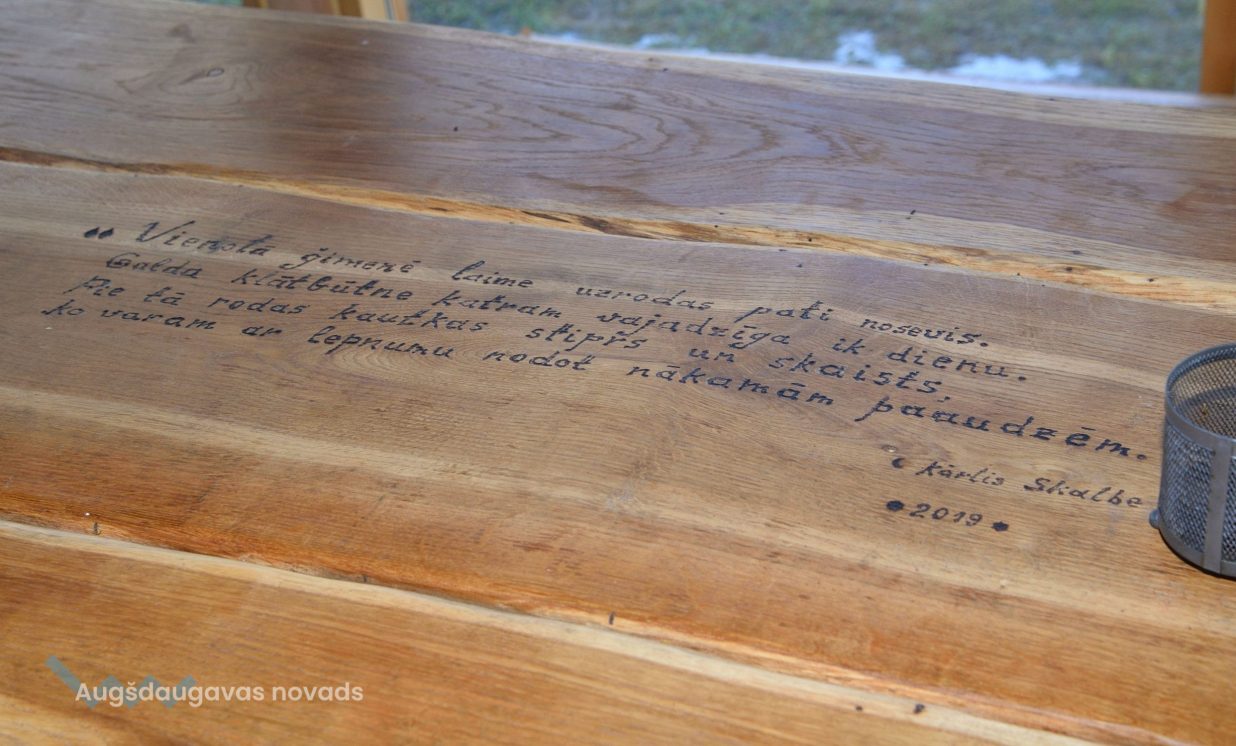 „ Vienotā ģimenē laime uzrodas pati nosevis.
Galda klātbūtne katram vajadzīga ik dienu.
Pie tā rodas kautkas stiprs un skaists,
ko varam ar lepnumu nodot nākamām paaudzēm.
Kārlis Skalbe
2019
Augšdaugavas novads